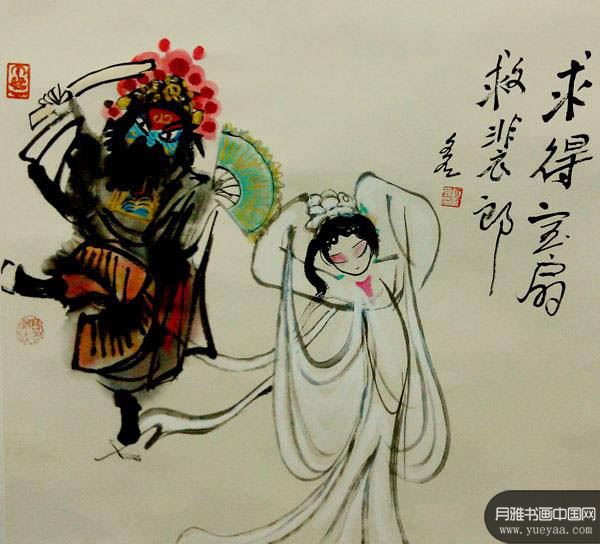 求得宝扇
救裴郎
月雅书画中国网
www.yueyaa.com